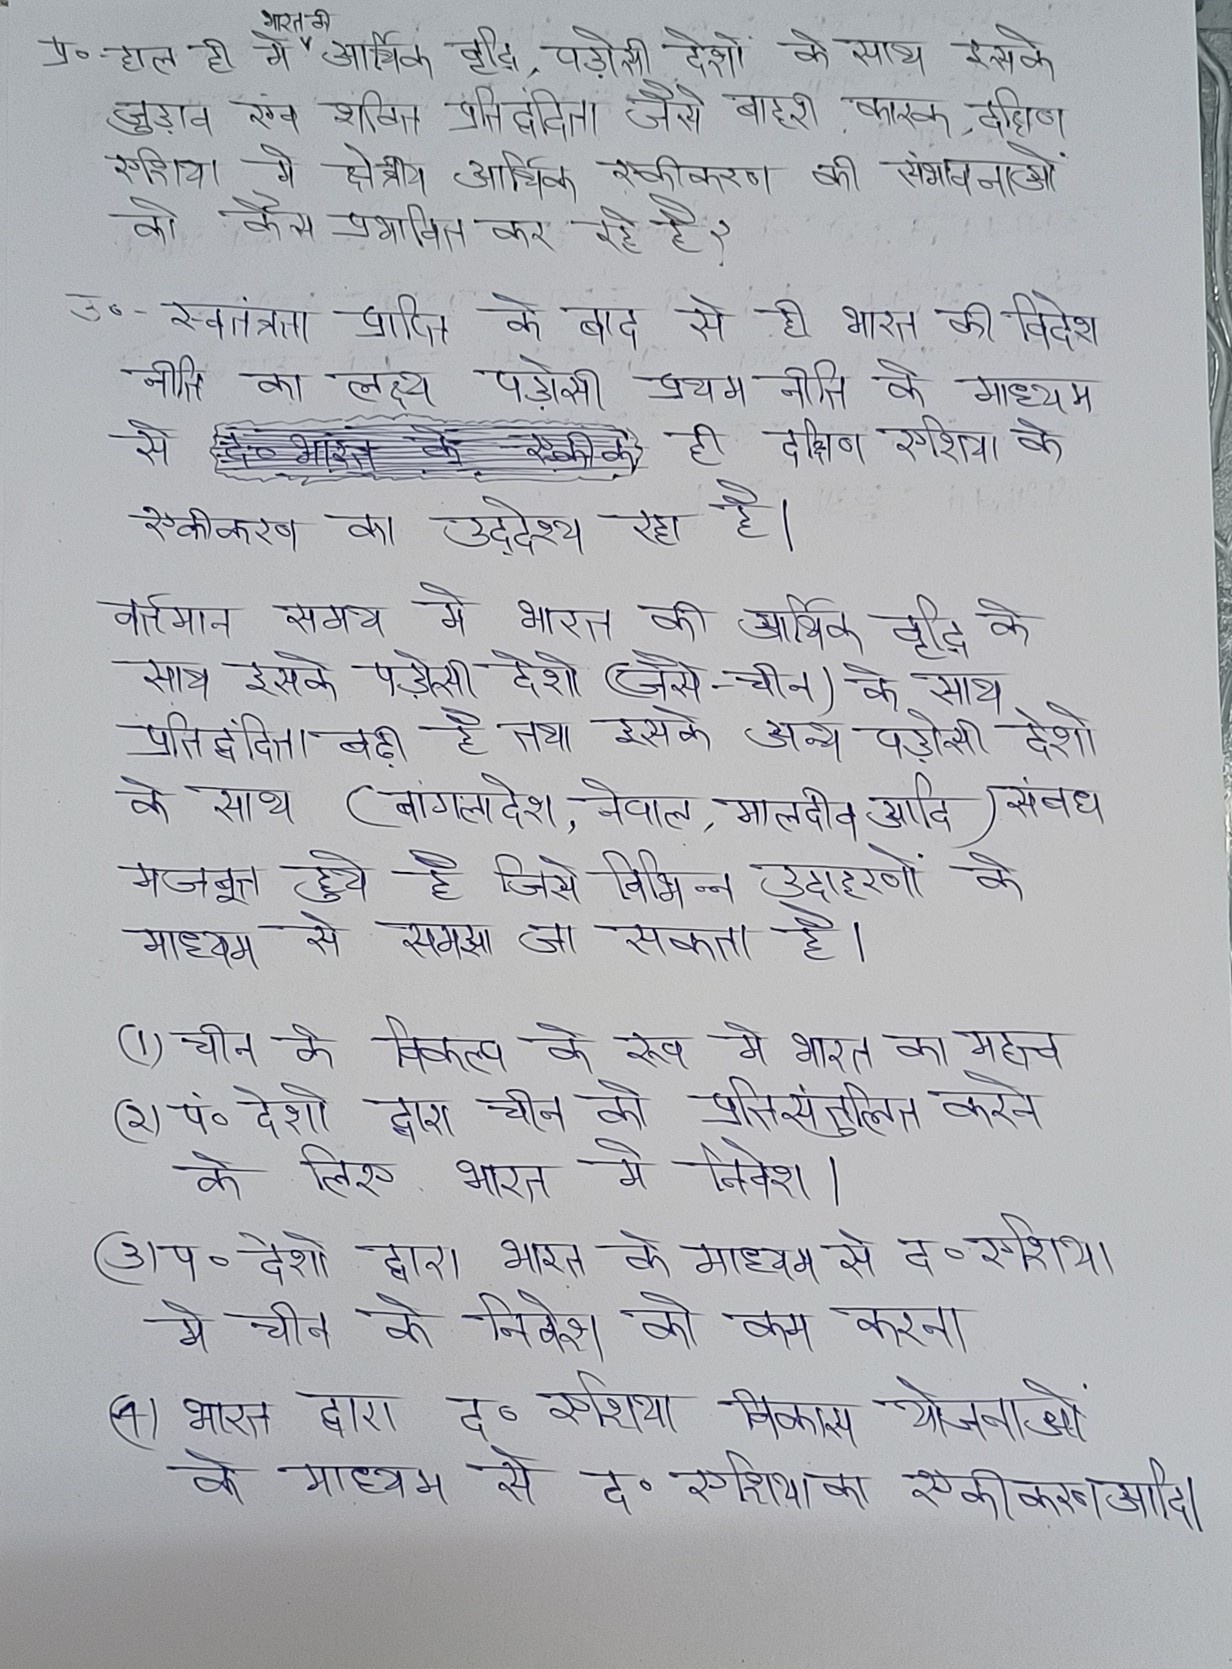 भारत की
प्र०- हाल ही में आर्थिक वृद्धि, पड़ोसी देशों के साथ इसके
जुड़ाव एंव शक्ति प्रतिद्वंदिता जैसे बाहरी कारक, दक्षिण
एशिया मे क्षेत्रीय आर्थिक एकीकरण की संभावनाओं
को कैस प्रभावित कर रहे है?
उ०- स्वतंत्रता प्राप्ति के बाद से ही भारत की विदेश
नीति का लक्ष्य पड़ोसी प्रथम नीति के माध्यम
से ही दक्षिण एशिया के
एकीकरण का उद्देश्य रहा है।
वर्तमान समय मे भारत की आर्थिक वृद्धि के
साथ इसके पड़ोसी देशो (जैसे-चीन) के साथ
प्रतिद्वंदिता बढ़ी है तथा इसके अन्य पड़ोसी देशो
के साथ (बांगलादेश, नेपाल, मालदीव आदि) संबध
मजबूत हुये है जिसे विभिन्न उदाहरणों के
माध्यम से समझा जा सकता है।
(1) चीन के विकल्प के रूप मे भारत का महत्त्व
(2) पं० देशो द्वारा चीन को प्रतिसंतुलित करने
के लिए भारत मे निवेश।
(3) प० देशो द्वारा भारत के माध्यम से द० एशिया
मे चीन के निवेश को कम करना
(4) भारत द्वारा द० एशिया विकास योजनाओं
के माध्यम से द० एशिया का एकीकरण आदि।